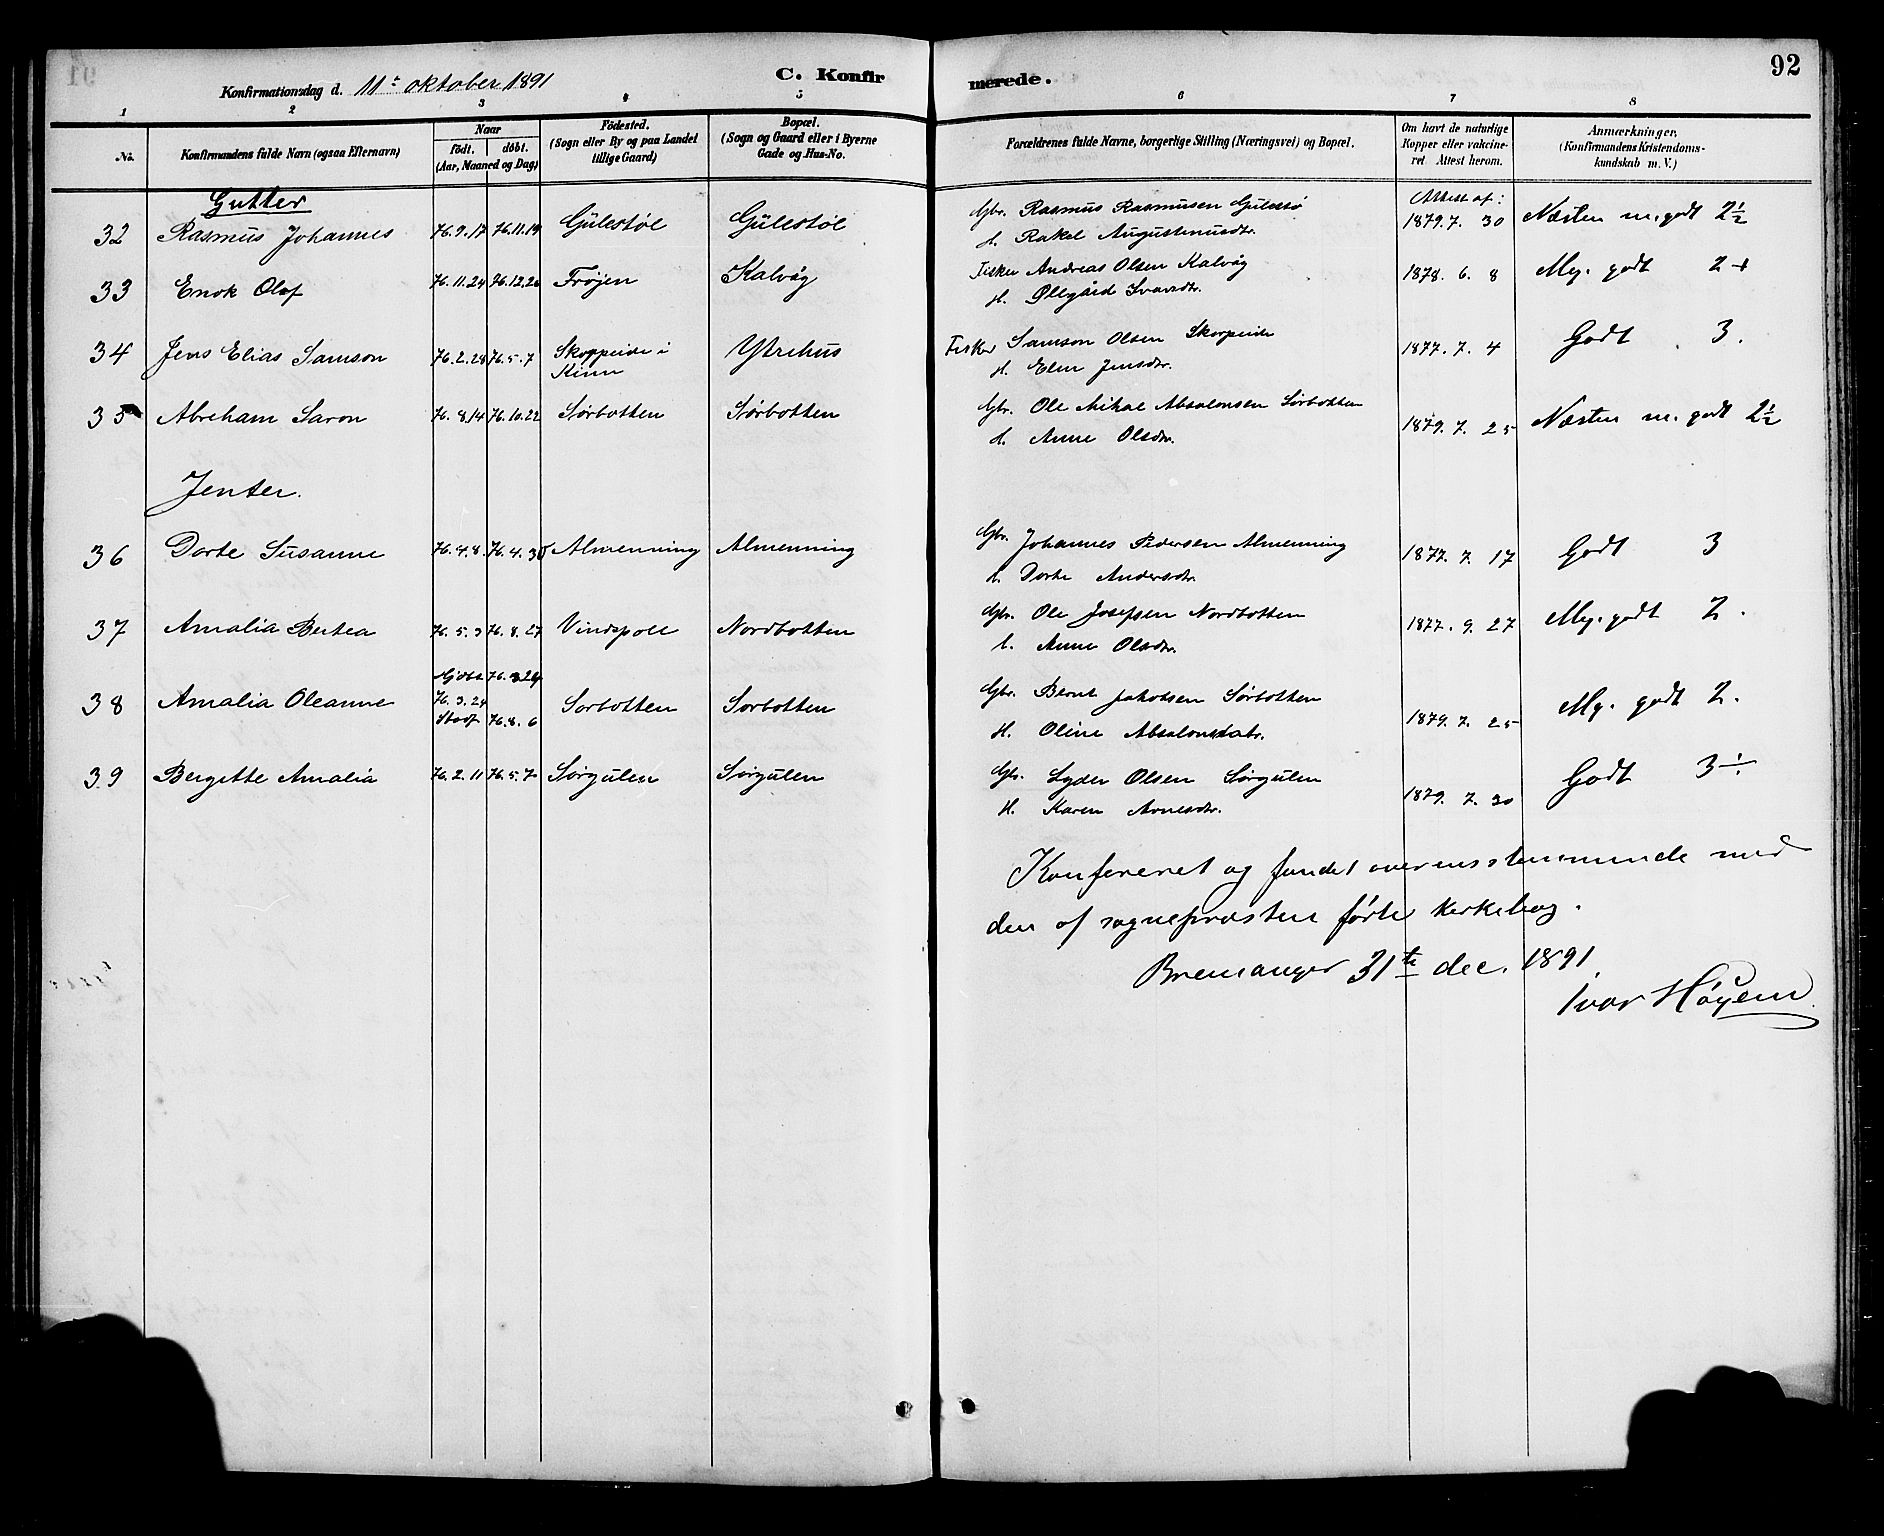 92
Konfirmationsdag d. 11te oktober 1891
C. Konfirmerede.
1 2 3 4 5 6 7 8
No.
Konfirmandens fulde Navn (ogsaa Efternavn)
Naar
födt. döbt.
(Aar, Maaned og Dag)
Födested.
(Sogn eller By og paa Landet
tillige Gaard)
Bopæl.
(Sogn og Gaard eller i Byerne
Gade og Hus-No.
Forældrenes fulde Navne, borgerlige Stilling (Næringsvei) og Bopæl.
Om havt de naturlige
Kopper eller vakcine-
ret. Attest herom.
Anmærkninger.
(Konfirmandens Kristendoms-
kundskab m. V.)
Gutter
Attest af:
32 Rasmus Johannes 76.9.17 76.11.19 Gülestöl Gülestöl Gbr. Rasmus Rasmusen Gulestø 1879.7.30 Næsten m. godt 2½
H. Rakel Augustinusdtr.
33 Enok Olaf 76.11.24 76.12.26 Frøjen Kalvåg Fisker Andreas Olsen Kalvåg 1878.6.8 Mg. godt 2+
H. Øllgård Ivarsdtr.
34 Jens Elias Samson 76.2.28 76.5.7 Skorpeide i Ytrehus Fisker Samson Olsen Skorpeide 1877.7.4 Godt 3.
Kinn H. Elen Jensdtr.
35 Abreham Saron 76.8.14 76.10.22 Sørbotten Sørbotten Gbr. Ole Mikal Absalonsen Sørbotten 1879.7.25 Næsten m. godt 2½
H. Anne Olsdtr.
Jenter.
36 Dorte Susanne 76.4.8. 76.4.30 Almenning Almenning Gbr. Johannes Pedersen Almenning 1877.7.17 Godt 3
H. Dorte Andersdtr.
37 Amalia Bertea 76.5.3 76.8.27 Vindspoll Nordbotten Gbr. Ole Josefsen Nordbotten 1877.9.27 Mg. godt 2.
H. Anne Olsdtr.
Hjdbt. 76.3.24
38 Amalia Oleanne 76.3.24 Sørbotten Sørbotten Gbr. Bernt Jakobsen Sørbotten 1879.7.25 Mg. godt 2.
Stadf. 76.8.6 H. Oline Absalonsdatr.
39 Bergitte Amalia 76.2.11 76.5.7 Sørgulen Sørgulen Gbr. Lyder Olsen Sørgulen 1879.7.30 Godt 3÷
H. Karen Arnesdtr.
Konfereret og fundet overensstemmende med
den af sognepræsten førte kirkebog.
Bremanger 31te dec. 1891.
Ivar Høyem